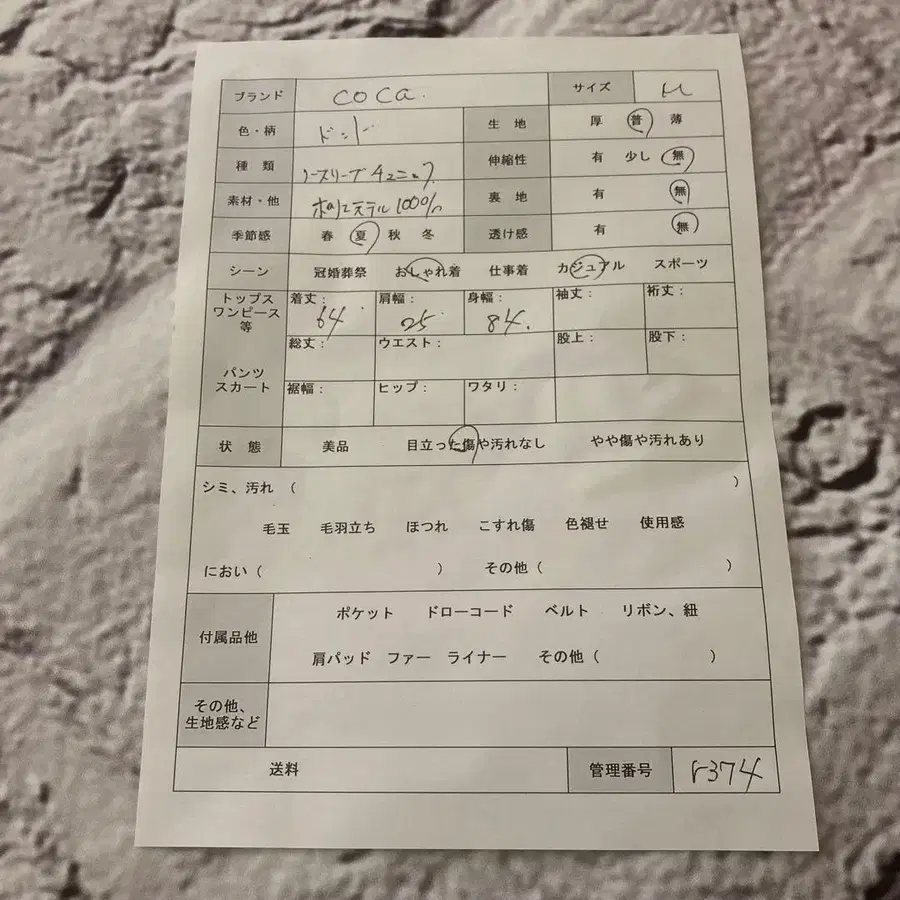 ブランド coca. サイズ M
色・柄 ドット 生地 厚 普 薄
種類 ノースリーブチュニック 伸縮性 有 少し 無
素材・他 ポリエステル100% 裏地 有 無
季節感 春 夏 秋 冬 透け感 有 無
シーン 冠婚葬祭 おしゃれ着 仕事着 カジュアル スポーツ
トップス
ワンピース
等
着丈: 64 肩幅: 25 身幅: 84. 袖丈: 裄丈:
パンツ
スカート
総丈: ウエスト: 股上: 股下:
裾幅: ヒップ: ワタリ:
状態 美品 目立った傷や汚れなし やや傷や汚れあり
シミ、汚れ ( )
毛玉 毛羽立ち ほつれ こすれ傷 色褪せ 使用感
におい ( ) その他 ( )
付属品他
ポケット ドローコード ベルト リボン、紐
肩パッド ファー ライナー その他 ( )
その他、
生地感など
送料 管理番号 r374